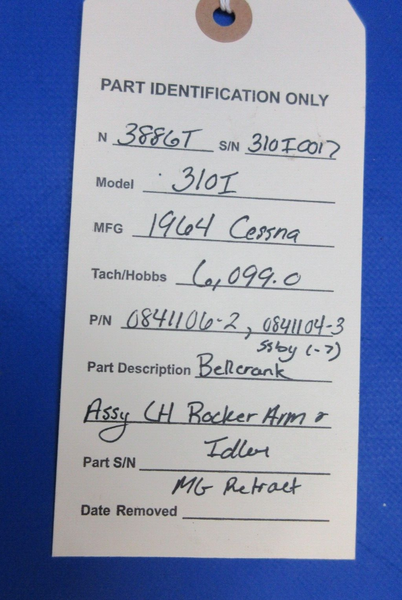 PART IDENTIFICATION ONLY
N 3886T S/N 310I0017
Model 310I
MFG 1964 Cessna
Tach/Hobbs 6,099.0
P/N 0841106-2, 0841104-3
ssby (-7)
Part Description Bellcrank
Assy LH Rocker Arm &
Idler
Part S/N
MG Retract
Date Removed